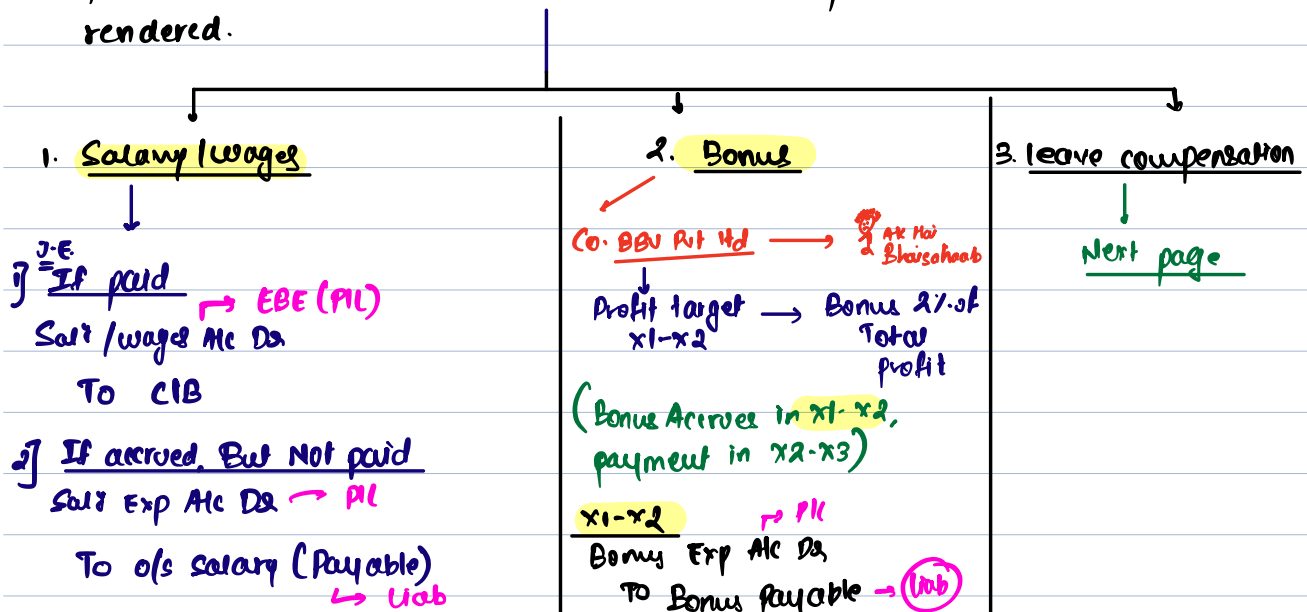 rendered.
1. Salary/wages
J.E.
1] If paid
EBE (P/L)
Salʸ/wages A/c Dr
To C/B
2] If accrued, But Not paid
Salʸ Exp A/c Dr → P/L
To o/s salary (Payable)
↳ Liab
2. Bonus
Co. BBV Pvt ltd →
Ak Hai
Bhaisahaab
Profit target → Bonus 2% of
x1-x2 Total
profit
(Bonus Accrues in x1-x2,
payment in x2-x3)
x1-x2
→ P/L
Bonus Exp A/c Dr
To Bonus Payable → Liab
3. leave compensation
Next page